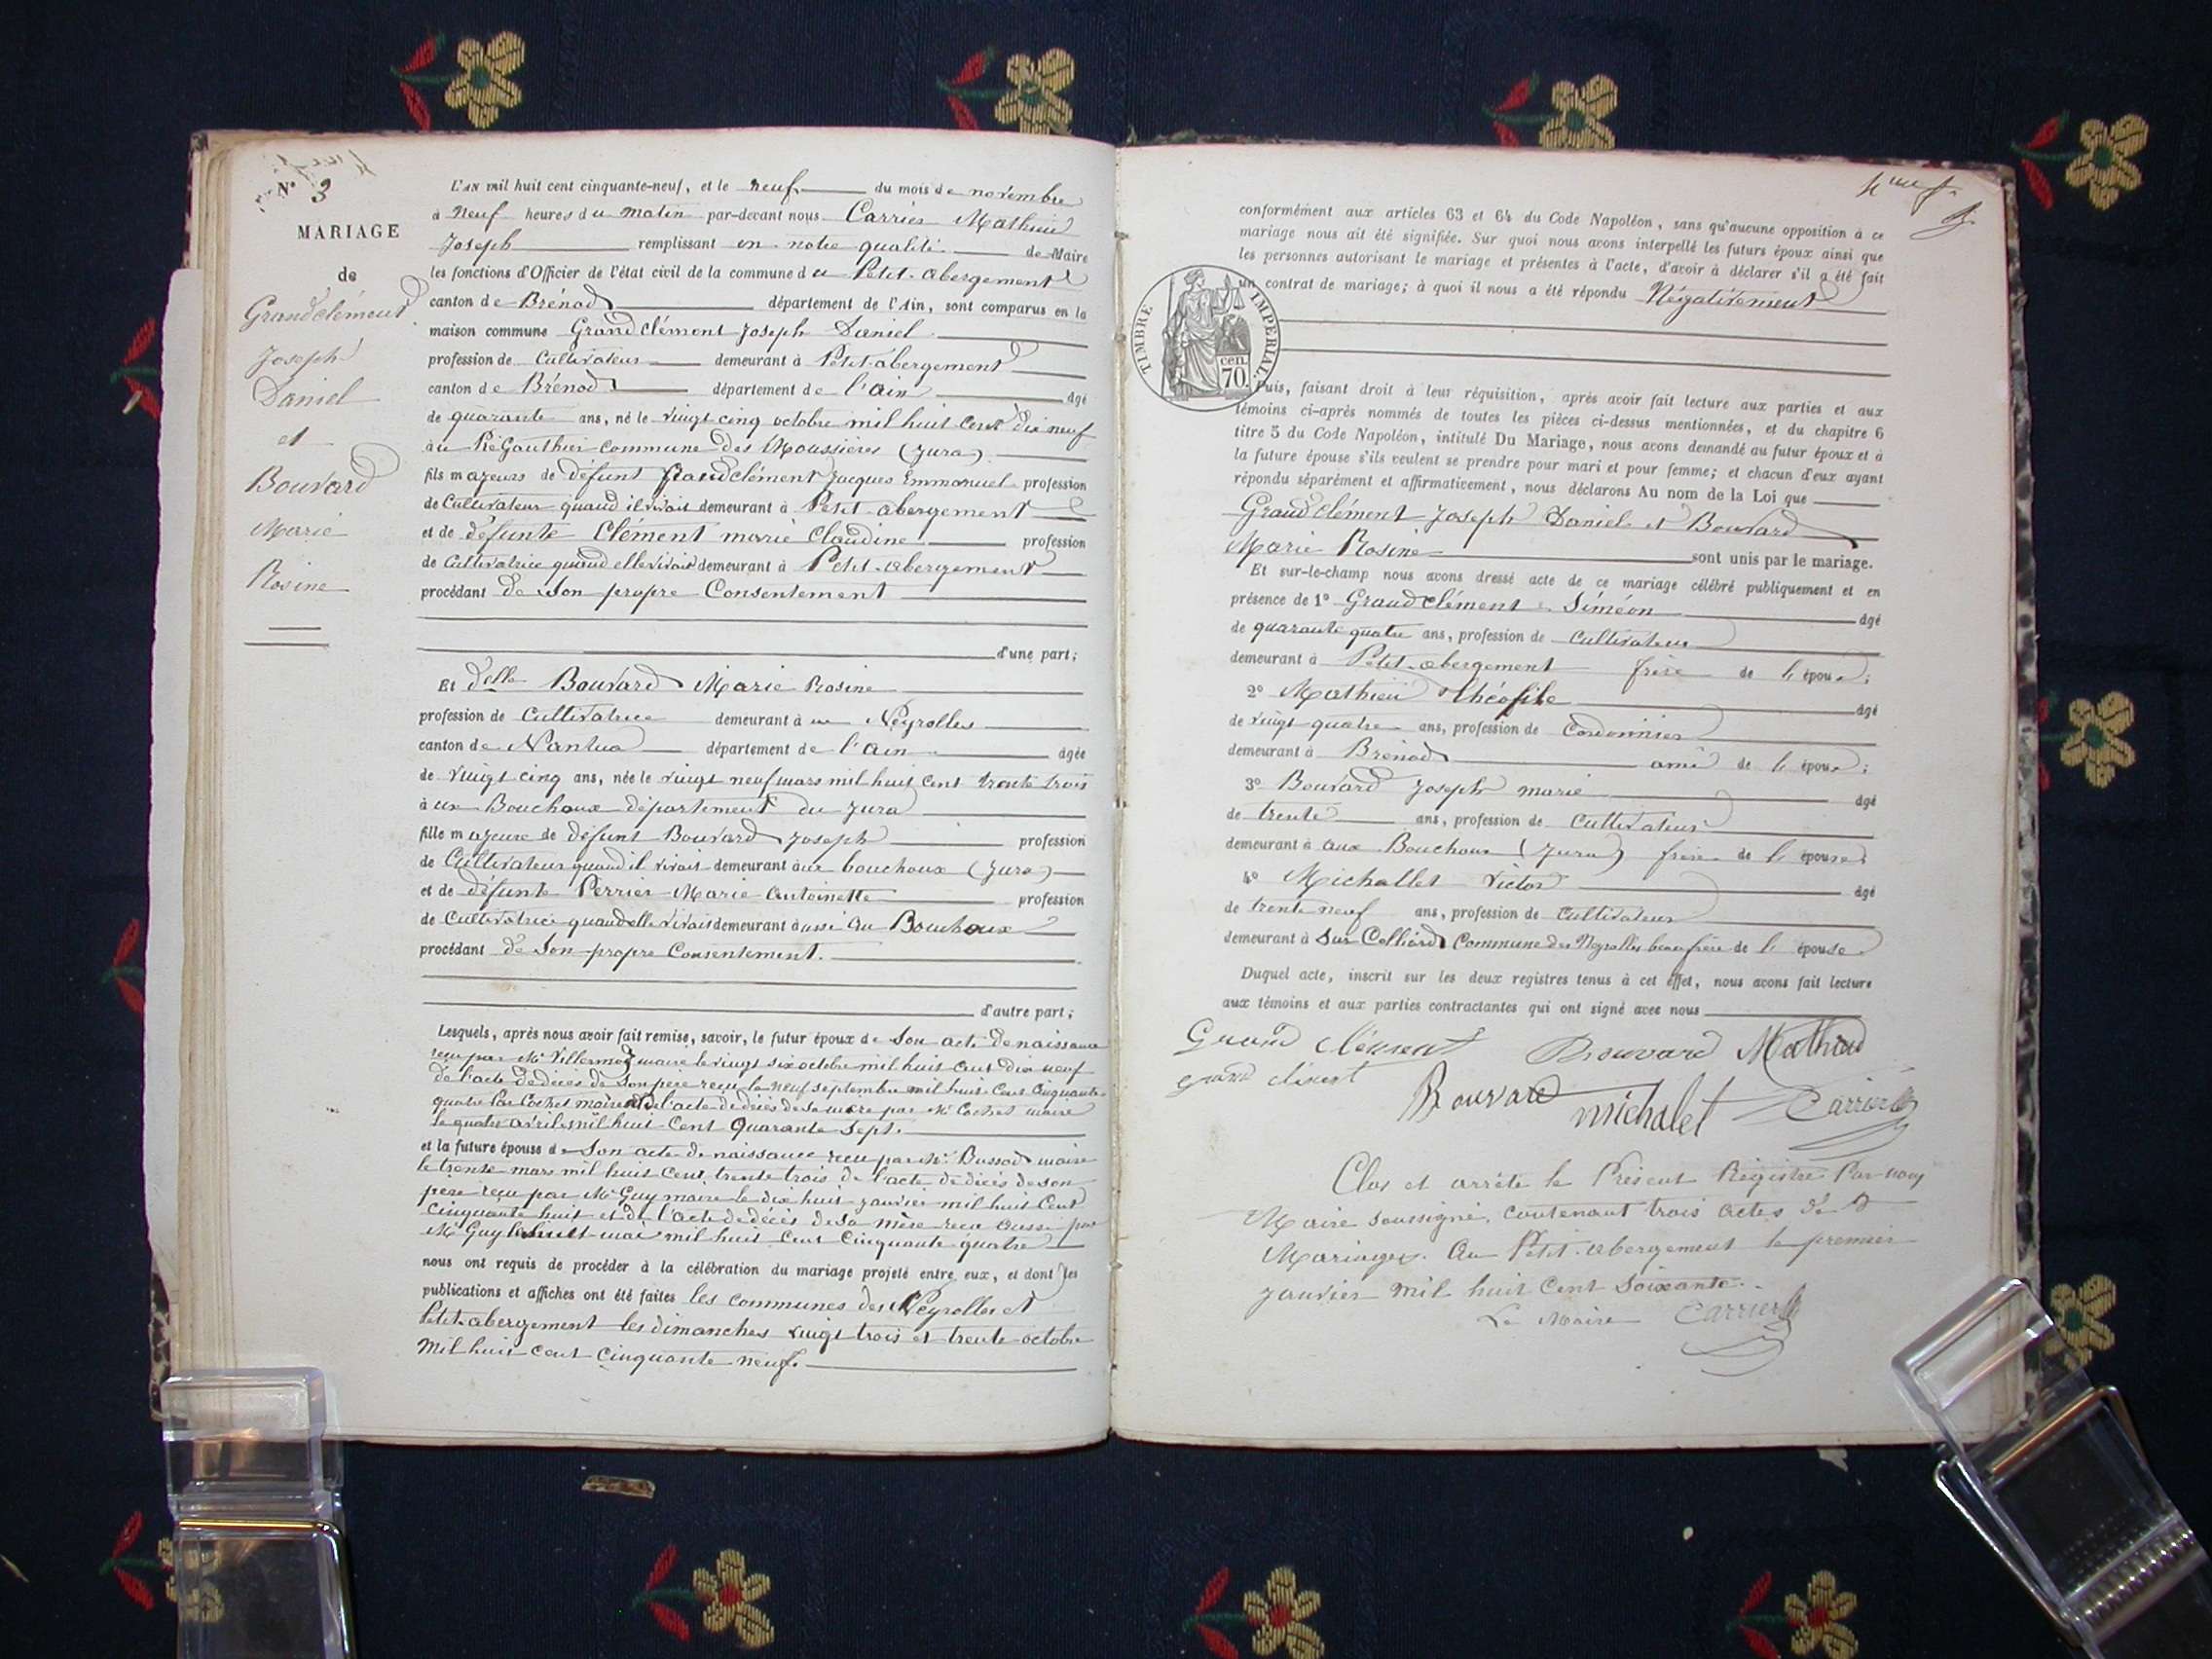 N° 3
MARIAGE
de
Grandclément
Joseph
Daniel
et
Bouvard
Marie
Rosine
L'AN mil huit cent cinquante-neuf, et le neuf du mois de novembre
à neuf heures du matin par-devant nous Carrier Mathieu
Joseph remplissant en notre qualité de Maire
les fonctions d'Officier de l'état civil de la commune du Petit-abergement
canton de Brénod département de l'Ain, sont comparus en la
maison commune Grandclément Joseph Daniel
profession de Cultivateur demeurant à Petit-abergement
canton de Brénod département de l'ain âgé
de quarante ans, né le vingt cinq octobre mil huit cent dix neuf
à au Pré Gauthier commune des Moussières (Jura)
fils majeurs de défunt Grandclément Jacques Emmanuel profession
de Cultivateur quand il vivait demeurant à Petit-abergement
et de défunte Clément marie Claudine profession
de Cultivatrice quand elle vivait demeurant à Petit-abergement
procédant de Son propre Consentement
d'une part;
Et delle Bouvard Marie Rosine
profession de Cultivatrice demeurant à ux Neyrolles
canton de Nantua département de l'ain âgée
de vingt cinq ans, née le vingt neuf mars mil huit cent trente trois
à ux Bouchoux département du Jura
fille majeure de défunt Bouvard Joseph profession
de Cultivateur quand il vivait demeurant à ux bouchoux (Jura)
et de défunte Perrier Marie Antoinette profession
de Cultivatrice quand elle vivait demeurant aussi au Bouchoux
procédant de Son propre Consentement.
d'autre part;
Lesquels, après nous avoir fait remise, savoir, le futur époux de Son acte de naissance
reçu par Mr Villermoz maire le vingt six octobre mil huit cent dix neuf
de l'acte de décès de son père reçu le neuf septembre mil huit cent cinquante
quatre par Cochet maire et de l'acte de décès de sa mère par Mr Cochet maire
le quatre avril mil huit Cent Quarante Sept.
et la future épouse de Son acte de naissance reçu par Mr Bussod maire
le trente mars mil huit cent trente trois de l'acte de décès de son
père reçu par Mr Guy maire le dix huit janvier mil huit Cent
Cinquante huit et de l'acte de décès de sa mère reçu aussi par
Mr Guy le huit mai mil huit cent Cinquante quatre
nous ont requis de procéder à la célébration du mariage projeté entre eux, et dont les
publications et affiches ont été faites les communes des Neyrolles et
Petit-abergement les dimanches vingt trois et trente octobre
mil huit cent cinquante neuf.
conformément aux articles 63 et 64 du Code Napoléon, sans qu'aucune opposition à ce
mariage nous ait été signifiée. Sur quoi nous avons interpellé les futurs époux ainsi que
les personnes autorisant le mariage et présentes à l'acte, d'avoir à déclarer s'il a été fait
un contrat de mariage; à quoi il nous a été répondu Négativement
TIMBRE IMPERIAL
70 cen.
Puis, faisant droit à leur réquisition, après avoir fait lecture aux parties et aux
témoins ci-après nommés de toutes les pièces ci-dessus mentionnées, et du chapitre 6
titre 5 du Code Napoléon, intitulé Du Mariage, nous avons demandé au futur époux et à
la future épouse s'ils veulent se prendre pour mari et pour femme; et chacun d'eux ayant
répondu séparément et affirmativement, nous déclarons Au nom de la Loi que
Grandclément Joseph Daniel et Bouvard
Marie Rosine sont unis par le mariage.
Et sur-le-champ nous avons dressé acte de ce mariage célébré publiquement et en
présence de 1° Grandclément Siméon âgé
de quarante quatre ans, profession de Cultivateur
demeurant à Petit-abergement frère de l' époux;
2° Mathieu théofile âgé
de vingt quatre ans, profession de Cordonnier
demeurant à Brénod ami de l' époux;
3° Bouvard Joseph marie âgé
de trente ans, profession de Cultivateur
demeurant à aux Bouchoux (Jura) frère de l' épouse;
4° Michallet Victor âgé
de trente neuf ans, profession de Cultivateur
demeurant à Sur Colliard Commune des Neyrolles beau frère de l' épouse
Duquel acte, inscrit sur les deux registres tenus à cet effet, nous avons fait lecture
aux témoins et aux parties contractantes qui ont signé avec nous
Grand clément Bouvard Mathieu
grand clément Bouvard michalet Carrier
Clos et arrêté le Présent Régistre Par nous
Maire soussigné, contenant trois actes de
Mariages. Au Petit-abergement le premier
janvier mil huit Cent Soixante.
Le Maire Carrier